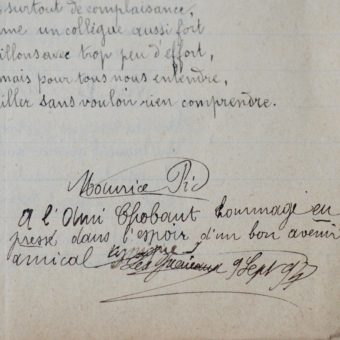 surtout de complaisance,
me un collègue aussi fort
illons avec trop peu d'effort,
mais pour tous nous entendre,
iller sans vouloir rien comprendre.
Maurice Pic
A l'Ami Chobaut hommage em
pressé dans l'espoir d'un bon avenir
amical
Les 9 Sept